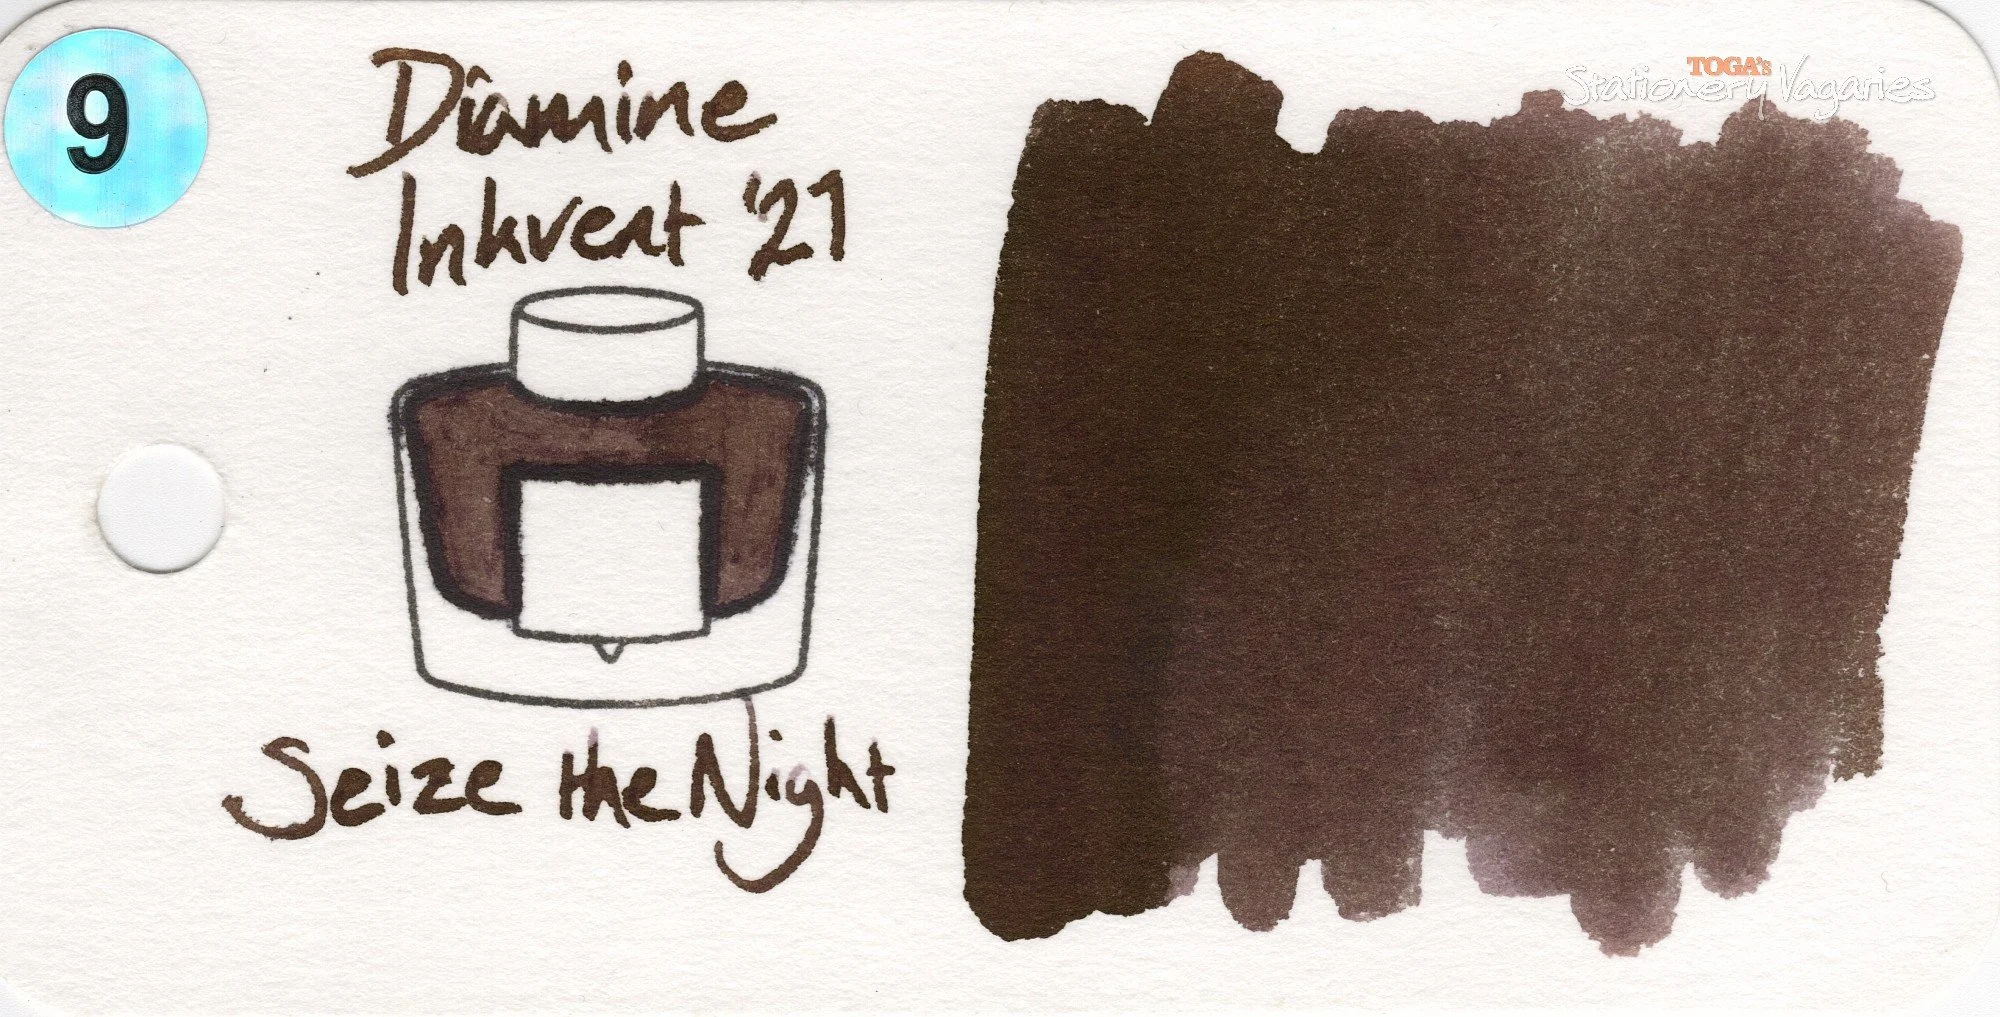 9
Diamine
Inkvent '21
TOGA's
Stationery Vagaries
Seize the Night